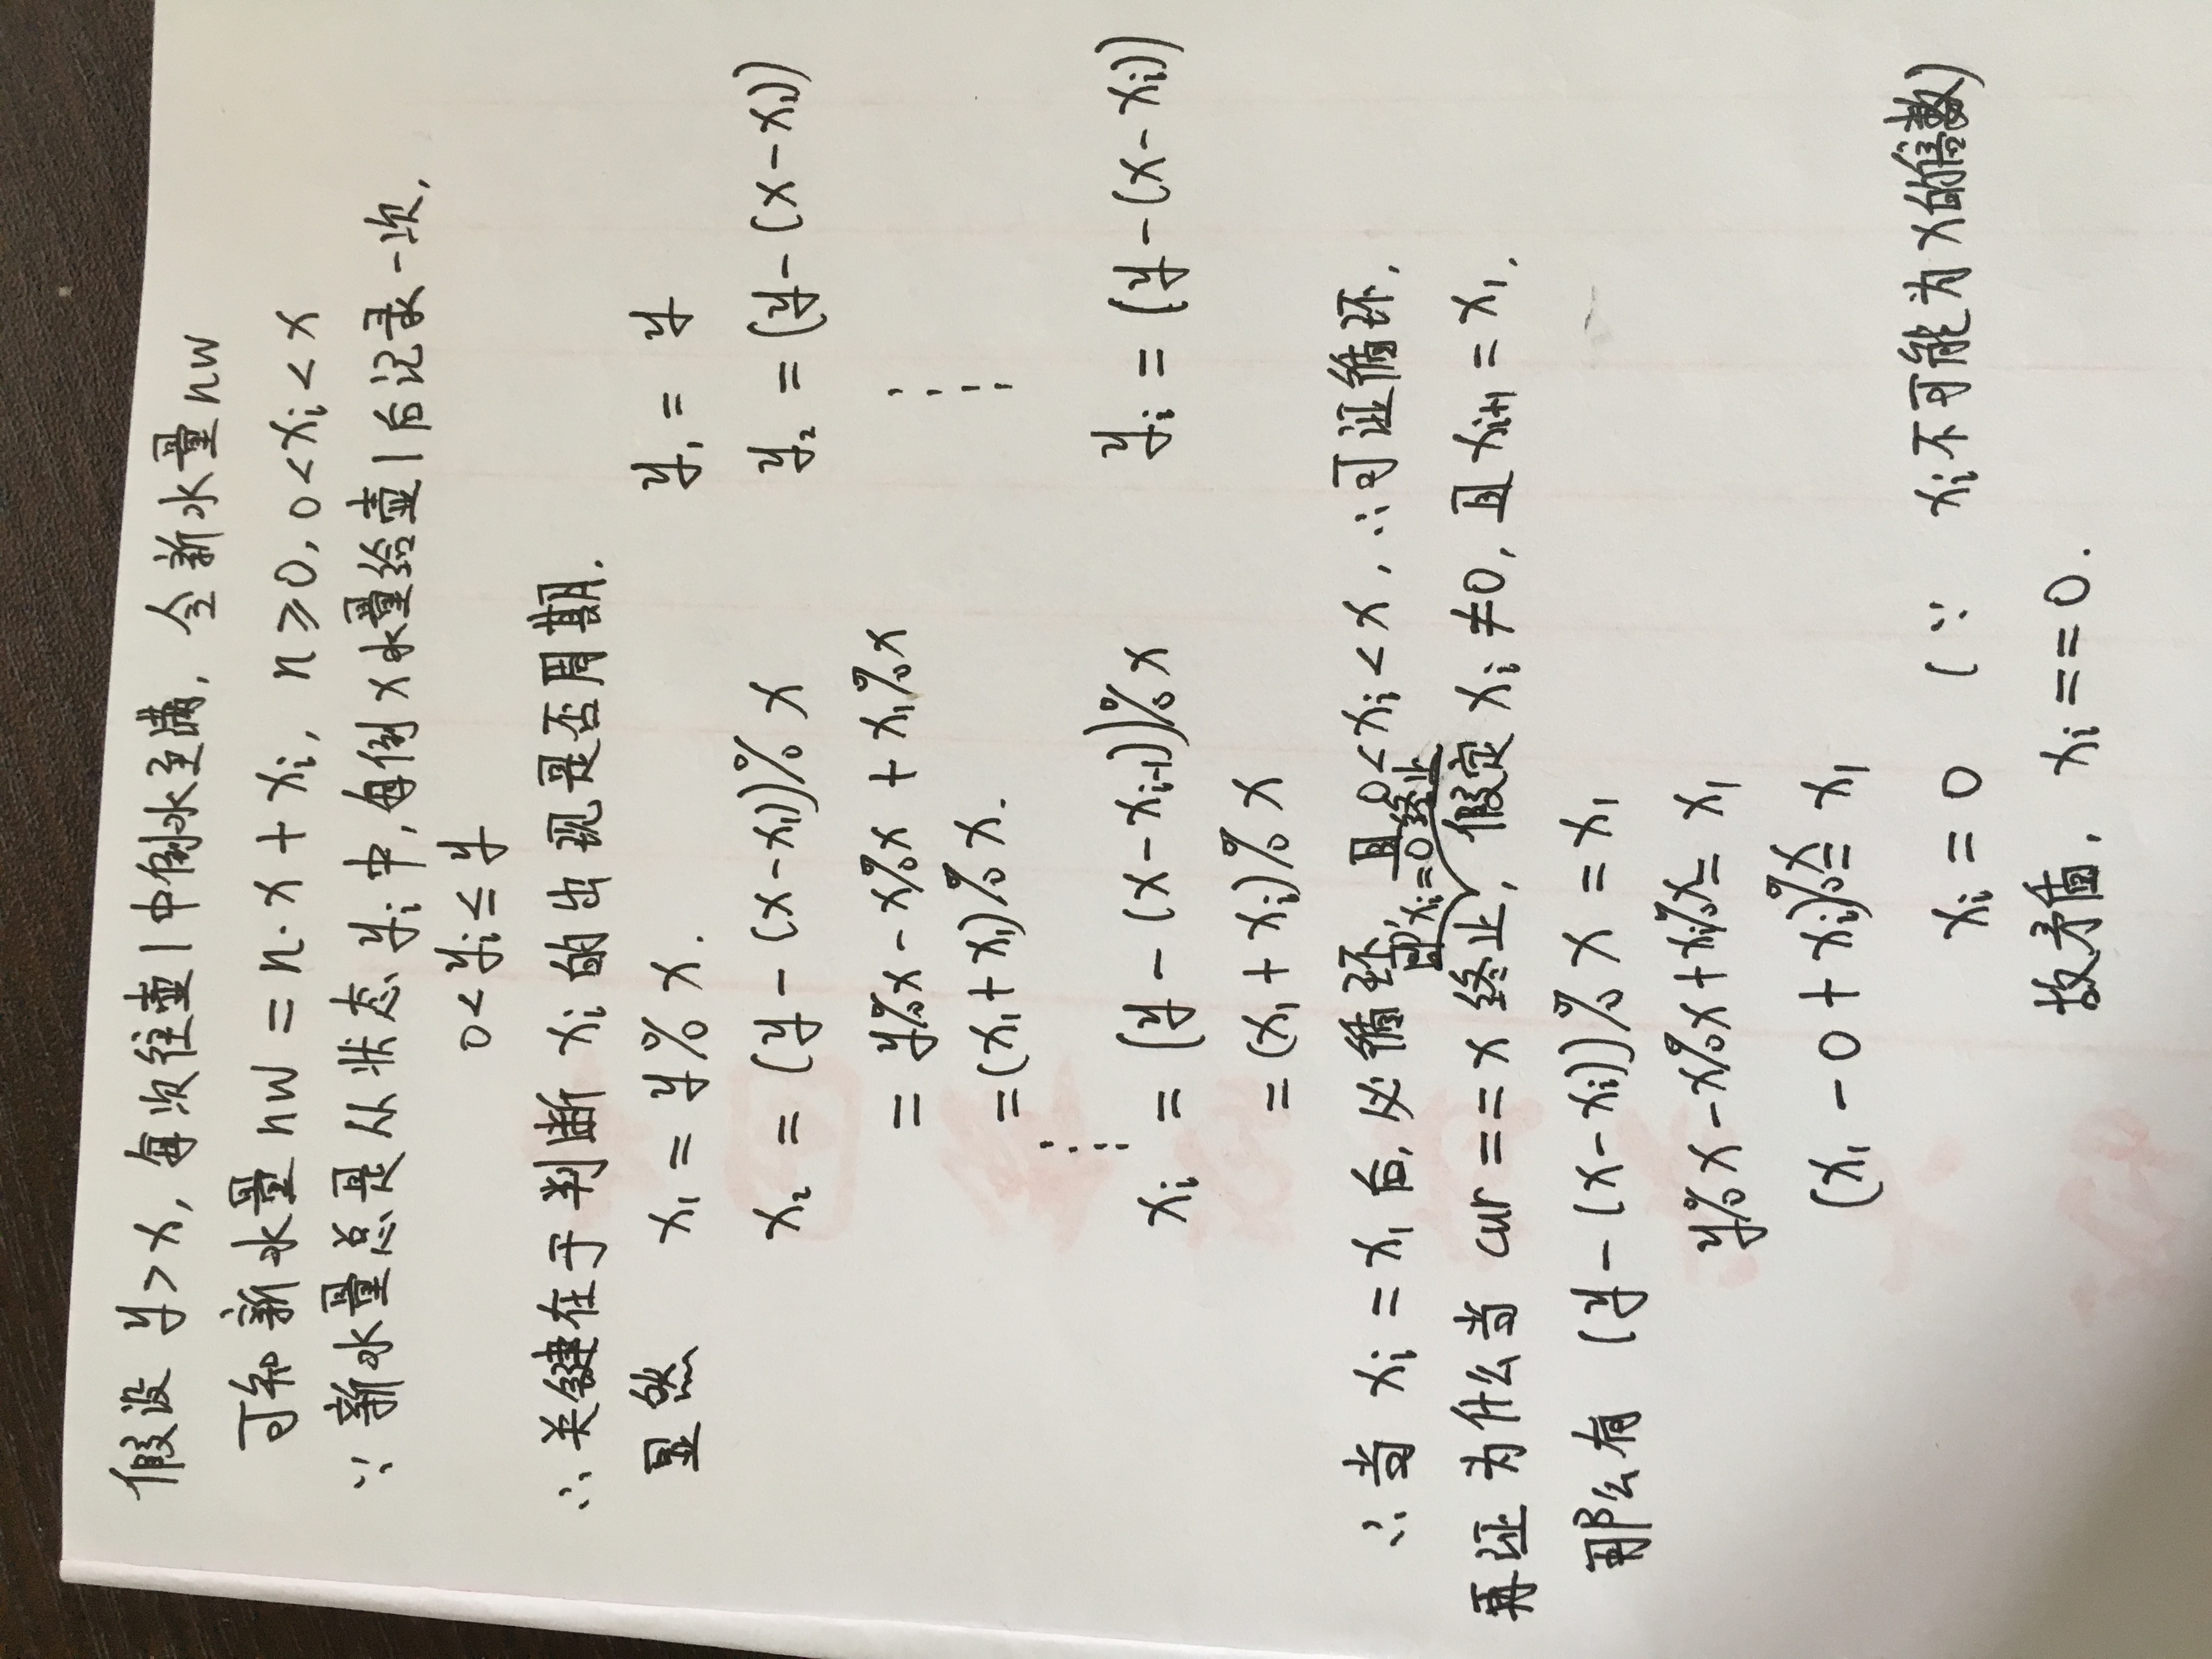 假设 y > x, 每次往壶1中倒水至满, 全新水量nw
可知新水量 nw = n·x + xi, n ≥ 0, 0 < xi < x
∵ 新水量总是从状态 yi 中, 每倒 x 水量给壶1后记录一次,
0 < yi ≤ y
∴ 关键在于判断 xi 的出现是否周期.
显然 x1 = y % x. y1 = y
x2 = (y - (x - x1)) % x y2 = (y - (x - x1))
= y%x - x%x + x1%x
= (x1 + x1) % x.
xi = (y - (x - xi-1)) % x yi = (y - (x - xi))
= (x1 + xi) % x
∴ 当 xi = x1 后, 必循环, 且 0 < xi < x, ∴ 可证循环.
即 xi=0 终止
再证为什么当 cur == x 终止, 假定 xi ≠ 0, 且 xi+1 = x1,
那么有 (y - (x - xi)) % x = x1
y%x - x%x + xi%x = x1
(x1 - 0 + xi)%x = x1
xi = 0 (∵ xi不可能为x的倍数)
故矛盾, xi == 0.